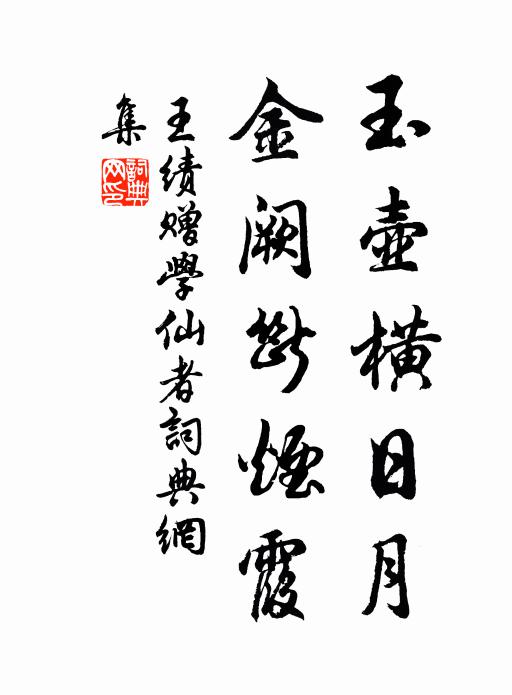 玉壺橫日月
金闕斷煙霞
王績贈學仙者詞典網
集
詞典
網印